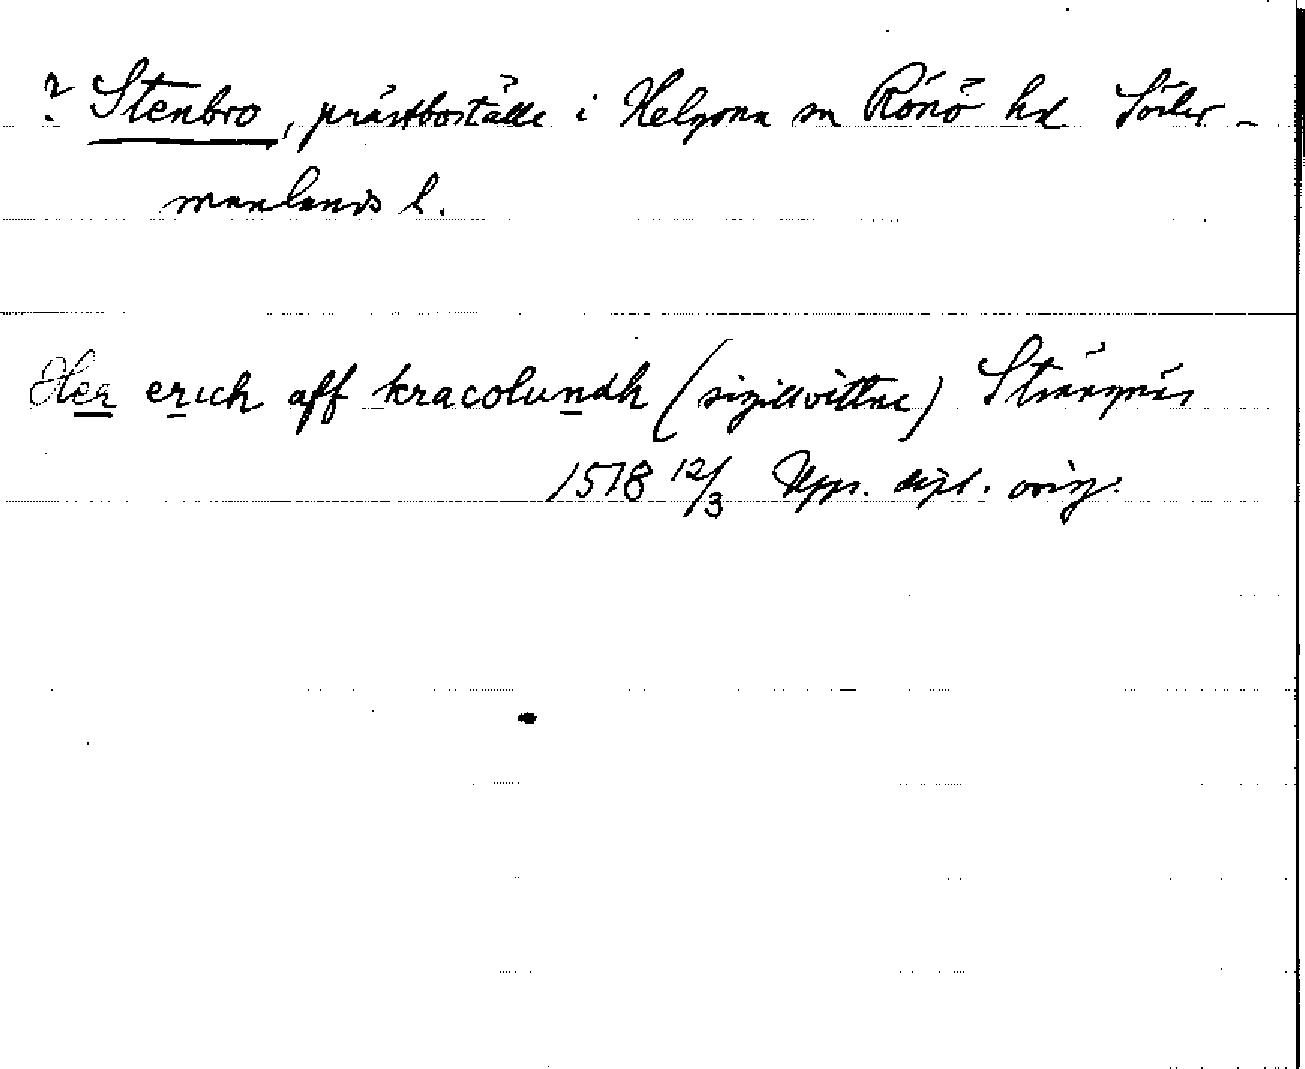 ? Stenbro, prästboställe i Helgona sn Rönö hd Söder-
manlands l.
Her erich aff kracolundh (sigillvittne) Strängnäs
1518 12/3 Upps. dipl. orig.